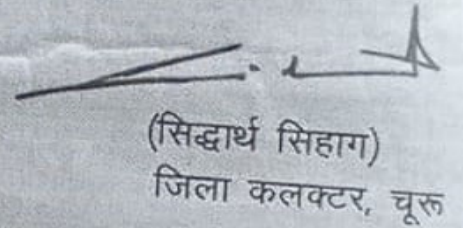 (सिद्धार्थ सिहाग)
जिला कलक्टर, चूरू